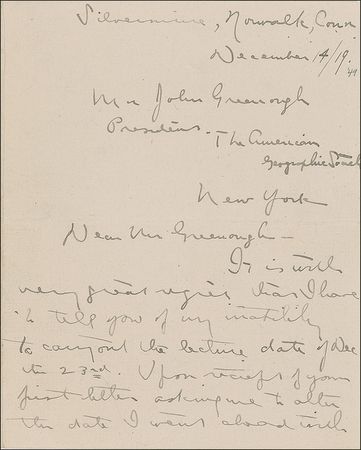 Silvermine, Norwalk, Conn
December 14/19.
Mr John Greenough
President - The American
Geographic Society
New York
Dear Mr Greenough -
It is with
very great regret that I have
to tell you of my inability
to carry out the lecture date of Dec
the 23rd. Upon receipt of your
first letter asking me to alter
the date I went ahead with